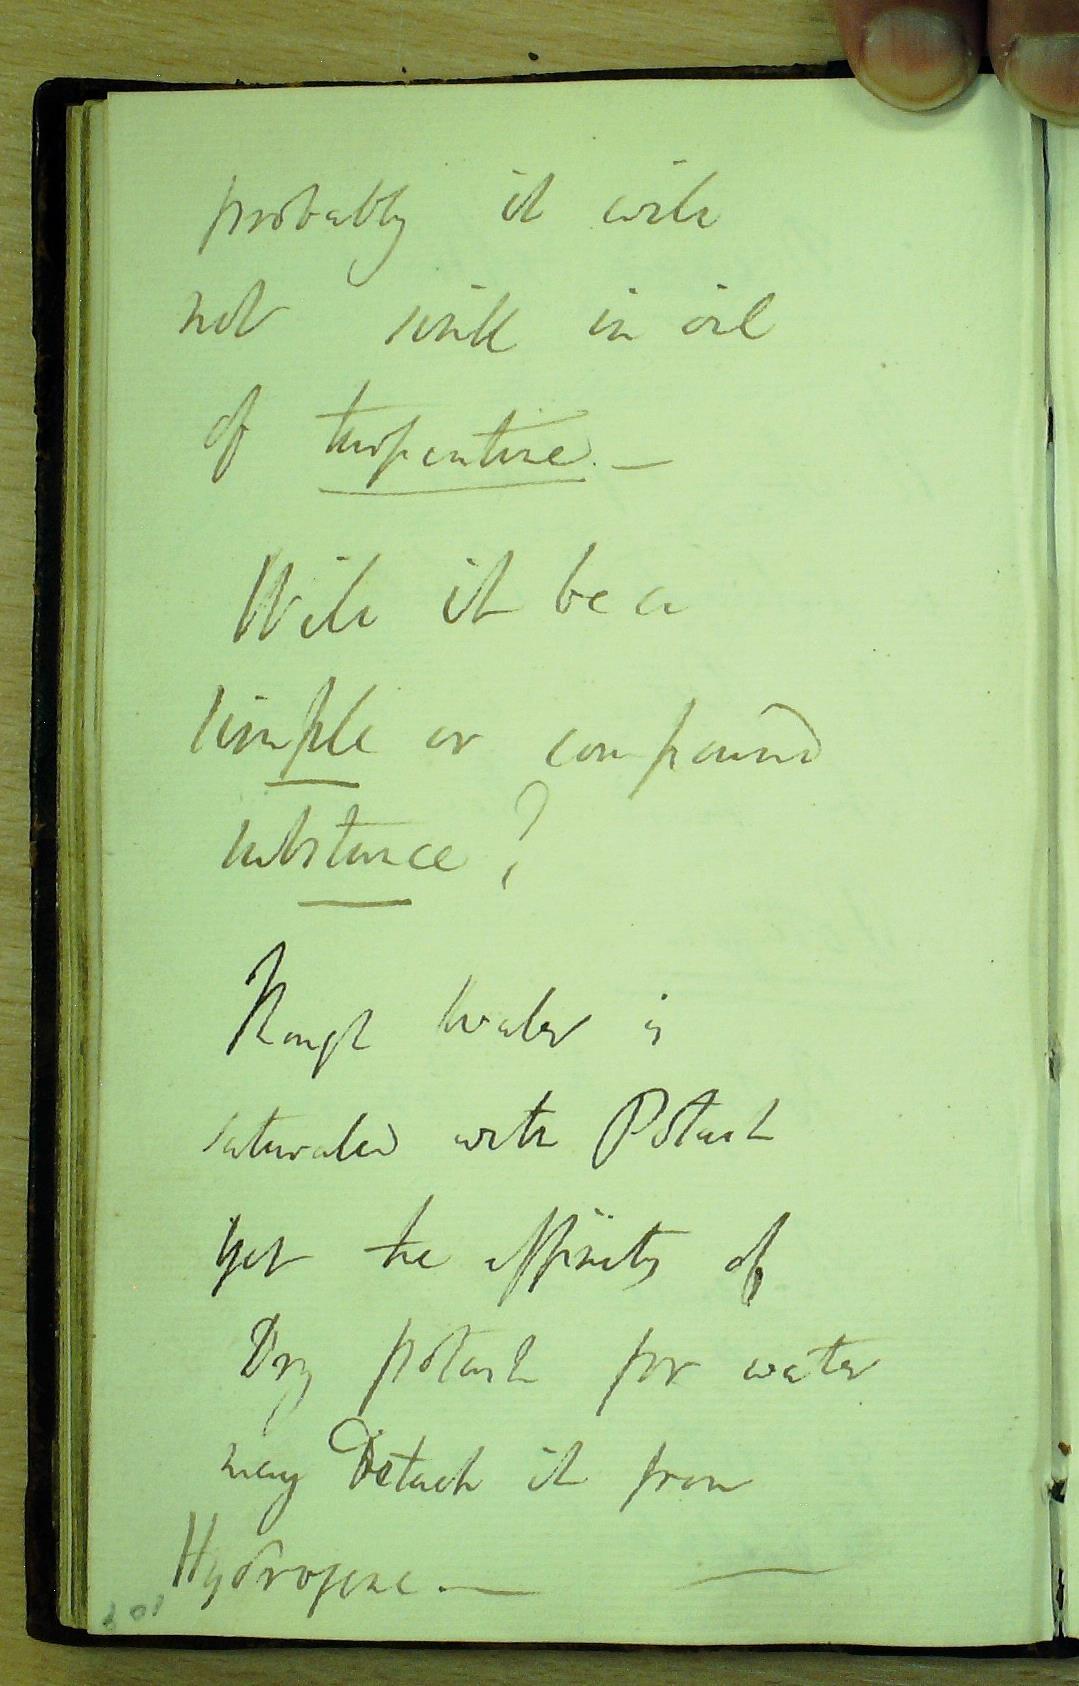 probably it will
not sink in oil
of turpentine. —
Will it be a
simple or compound
substance?
Though water is
saturated with Potash
yet the affinity of
Dry potash for water
may Detach it from
Hydrogene. — —